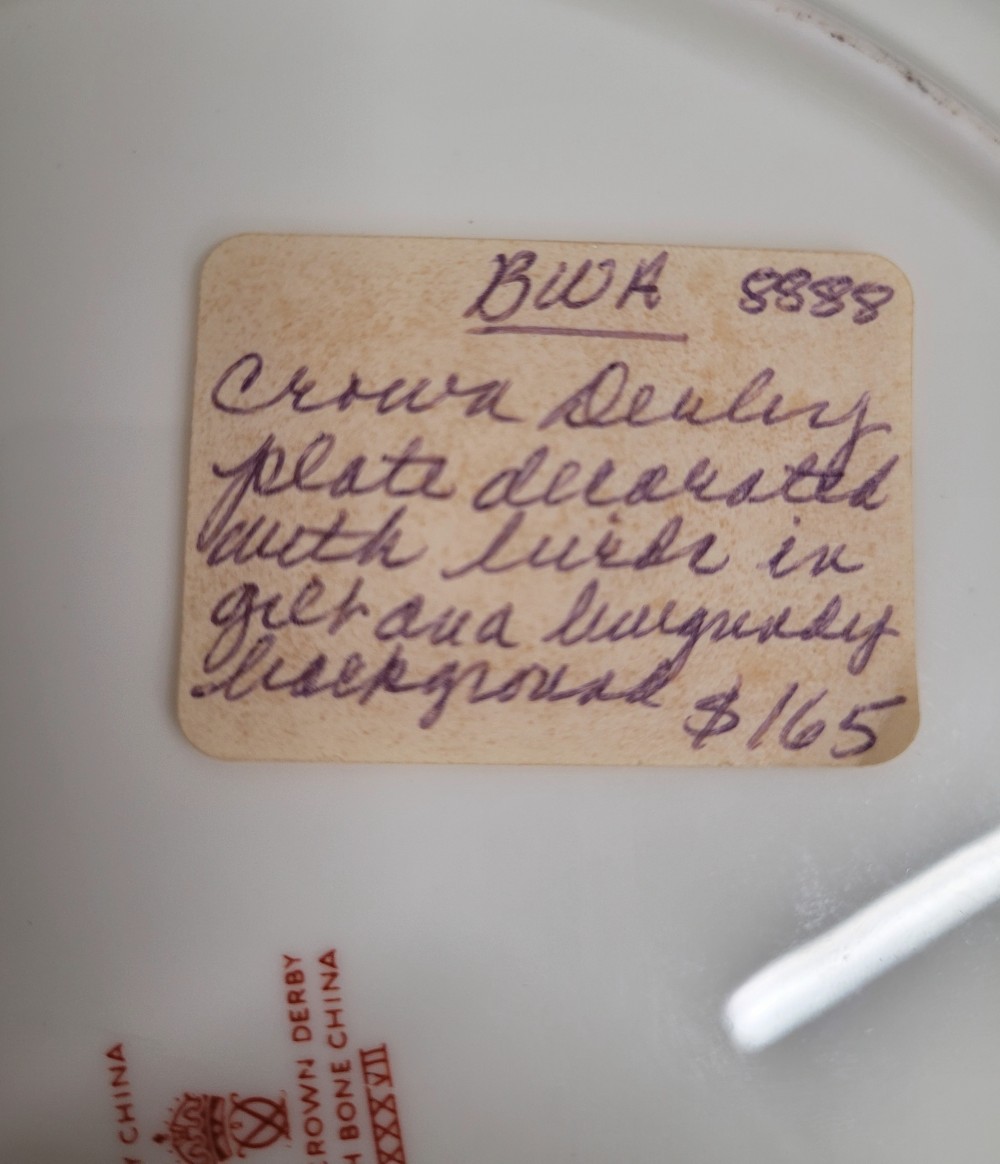 BWA 8888
Crown Derby
plate decorated
with birds in
gilt and burgundy
background $165
CROWN DERBY
BONE CHINA
XXXVII
CHINA